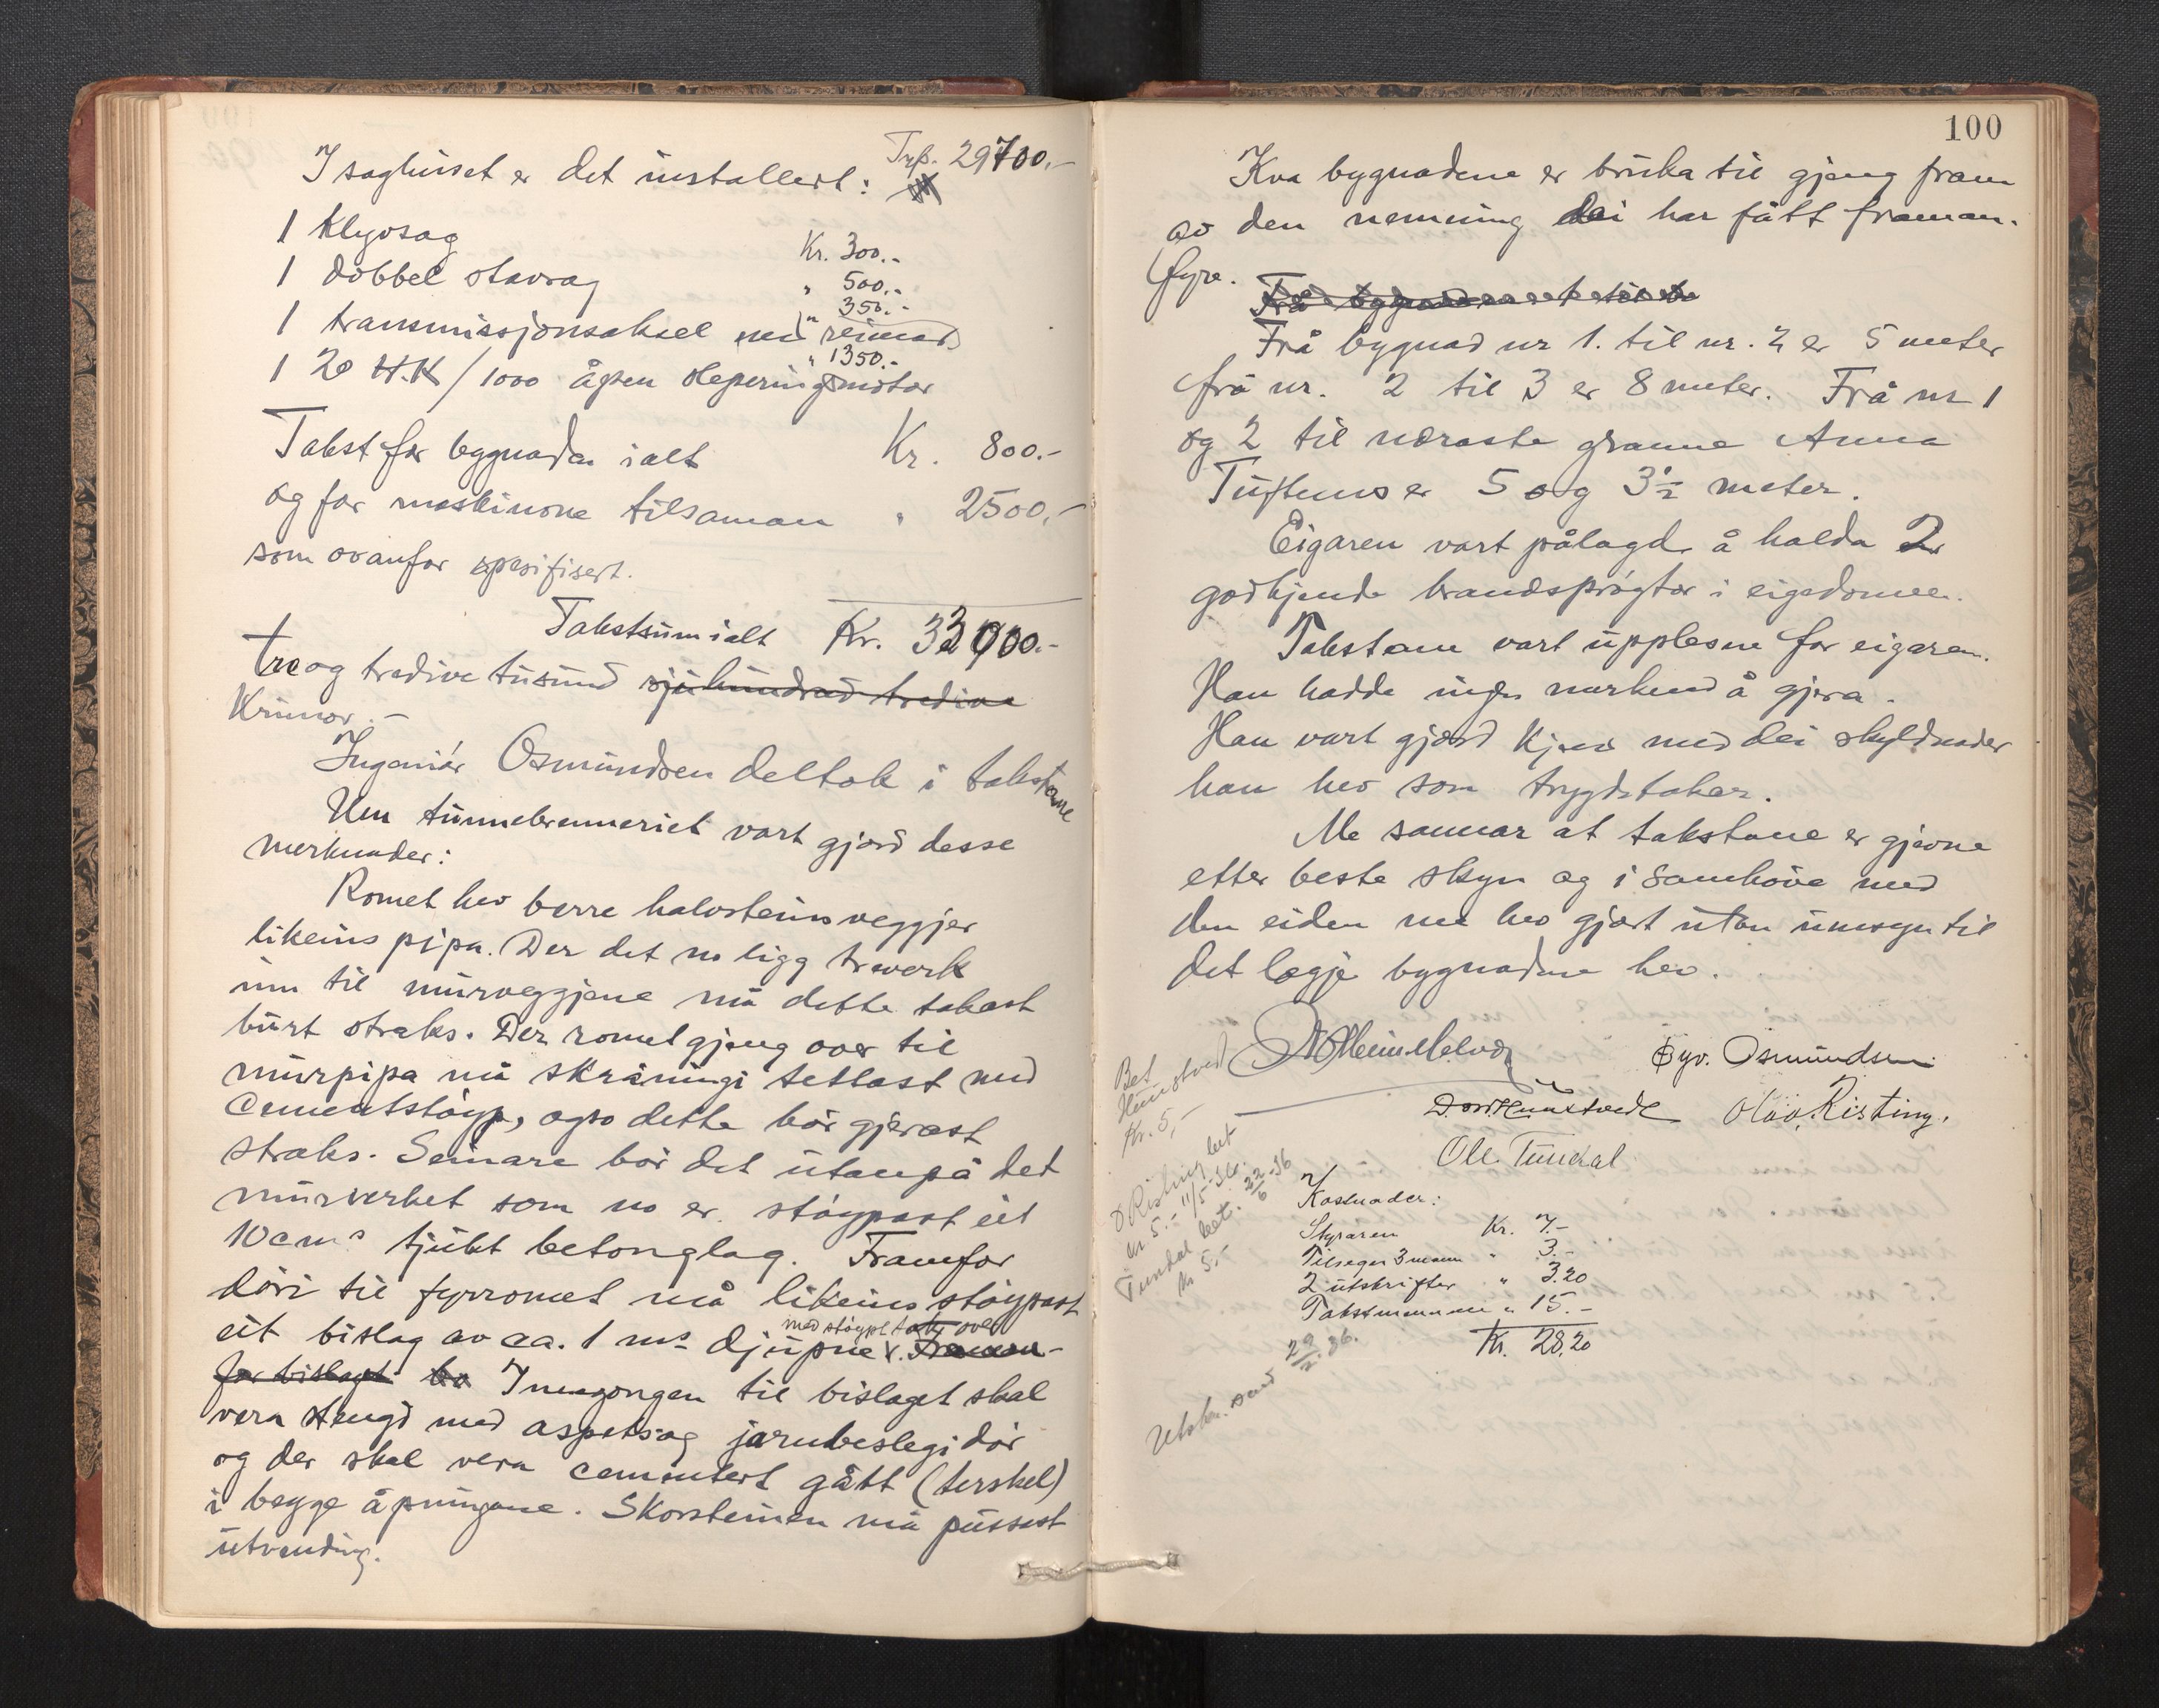 Trp. 29700.-
I saghuset er det installert:
1 Klyvsag Kr. 300.-
1 dobbel stavsag " 500.-
1 transmissjonsaksel med reimar " 350.-
1 20 H.K/1000 åpen sleperingsmotor " 1350.-
Takst for bygnaden ialt Kr. 800.-
og for maskinone tilsaman " 2500.-
som ovanfor spesifisert.
Takstsum ialt Kr. 33000.-
tre og tredive tusund sjuhundrad tredive
Krunor.-
Ingeniør Osmundsen deltok i takstane
Um tunnebrenneriet vart gjord desse
merknader:
Romet hev berre halvsteins veggjer
likeins pipa. Der det no ligg treverk
inn til murveggjene må dette takast
burt straks. Der romet gjeng over til
murpipa må skråningi tettast med
cementstøyp, ogso dette bør gjerast
straks. Seinare bør det utanpå det
murverket som no er støypast eit
10 cm's tjukt betonglag. Framfor
døri til fyrromet må likeins støypast
med støypt tak over
eit bislag av ca. 1 m's djupne v. Framan-
for bislaget bø Inngongen til bislaget skal
vera stengd med aspets og jarnbeslegi dør
og der skal vera cementert gått (terskel)
i begge åpningane. Skorsteinen må pussast
utvendig.
100
Kva bygnadene er bruka til gjeng fram
av den nemning dei har fått framan-
fyre.
Frå bygnad nr 1. til nr. 2 er 5 meter
frå nr. 2 til 3 er 8 meter. Frå nr 1
og 2 til næraste granne Anna
Tuftemo er 5 og 3½ meter.
Eigaren vart pålagd å halda 2
godkjende brandsprøytor i eigedomen.
Takstane vart upplesne for eigaren.
Han hadde ingen merknad å gjera.
Han vart gjord kjend med dei skyldnader
han hev som trygdetakar.
Me sannar at takstane er gjevne
etter beste skyn og i samhøve med
den eiden me hev gjort utan umsyn til
det lægje bygnadene hev.
Eyv. Osmundsen
D. Hunstvedt Olav Risting.
Ole Tundal
Bet
Hunstvedt
Kr. 5,-
O Risting bet
kr 5.- 11/5-36.
Tundal bet. 22/6-36
Kr 5.-
Kostnader:
Styraren Kr. 7.-
Tilseger 3 mann " 3.-
2 utskrifter " 3.20
Takstmennene " 15.-
Kr. 28.20
Utskr. send 29/2.36.